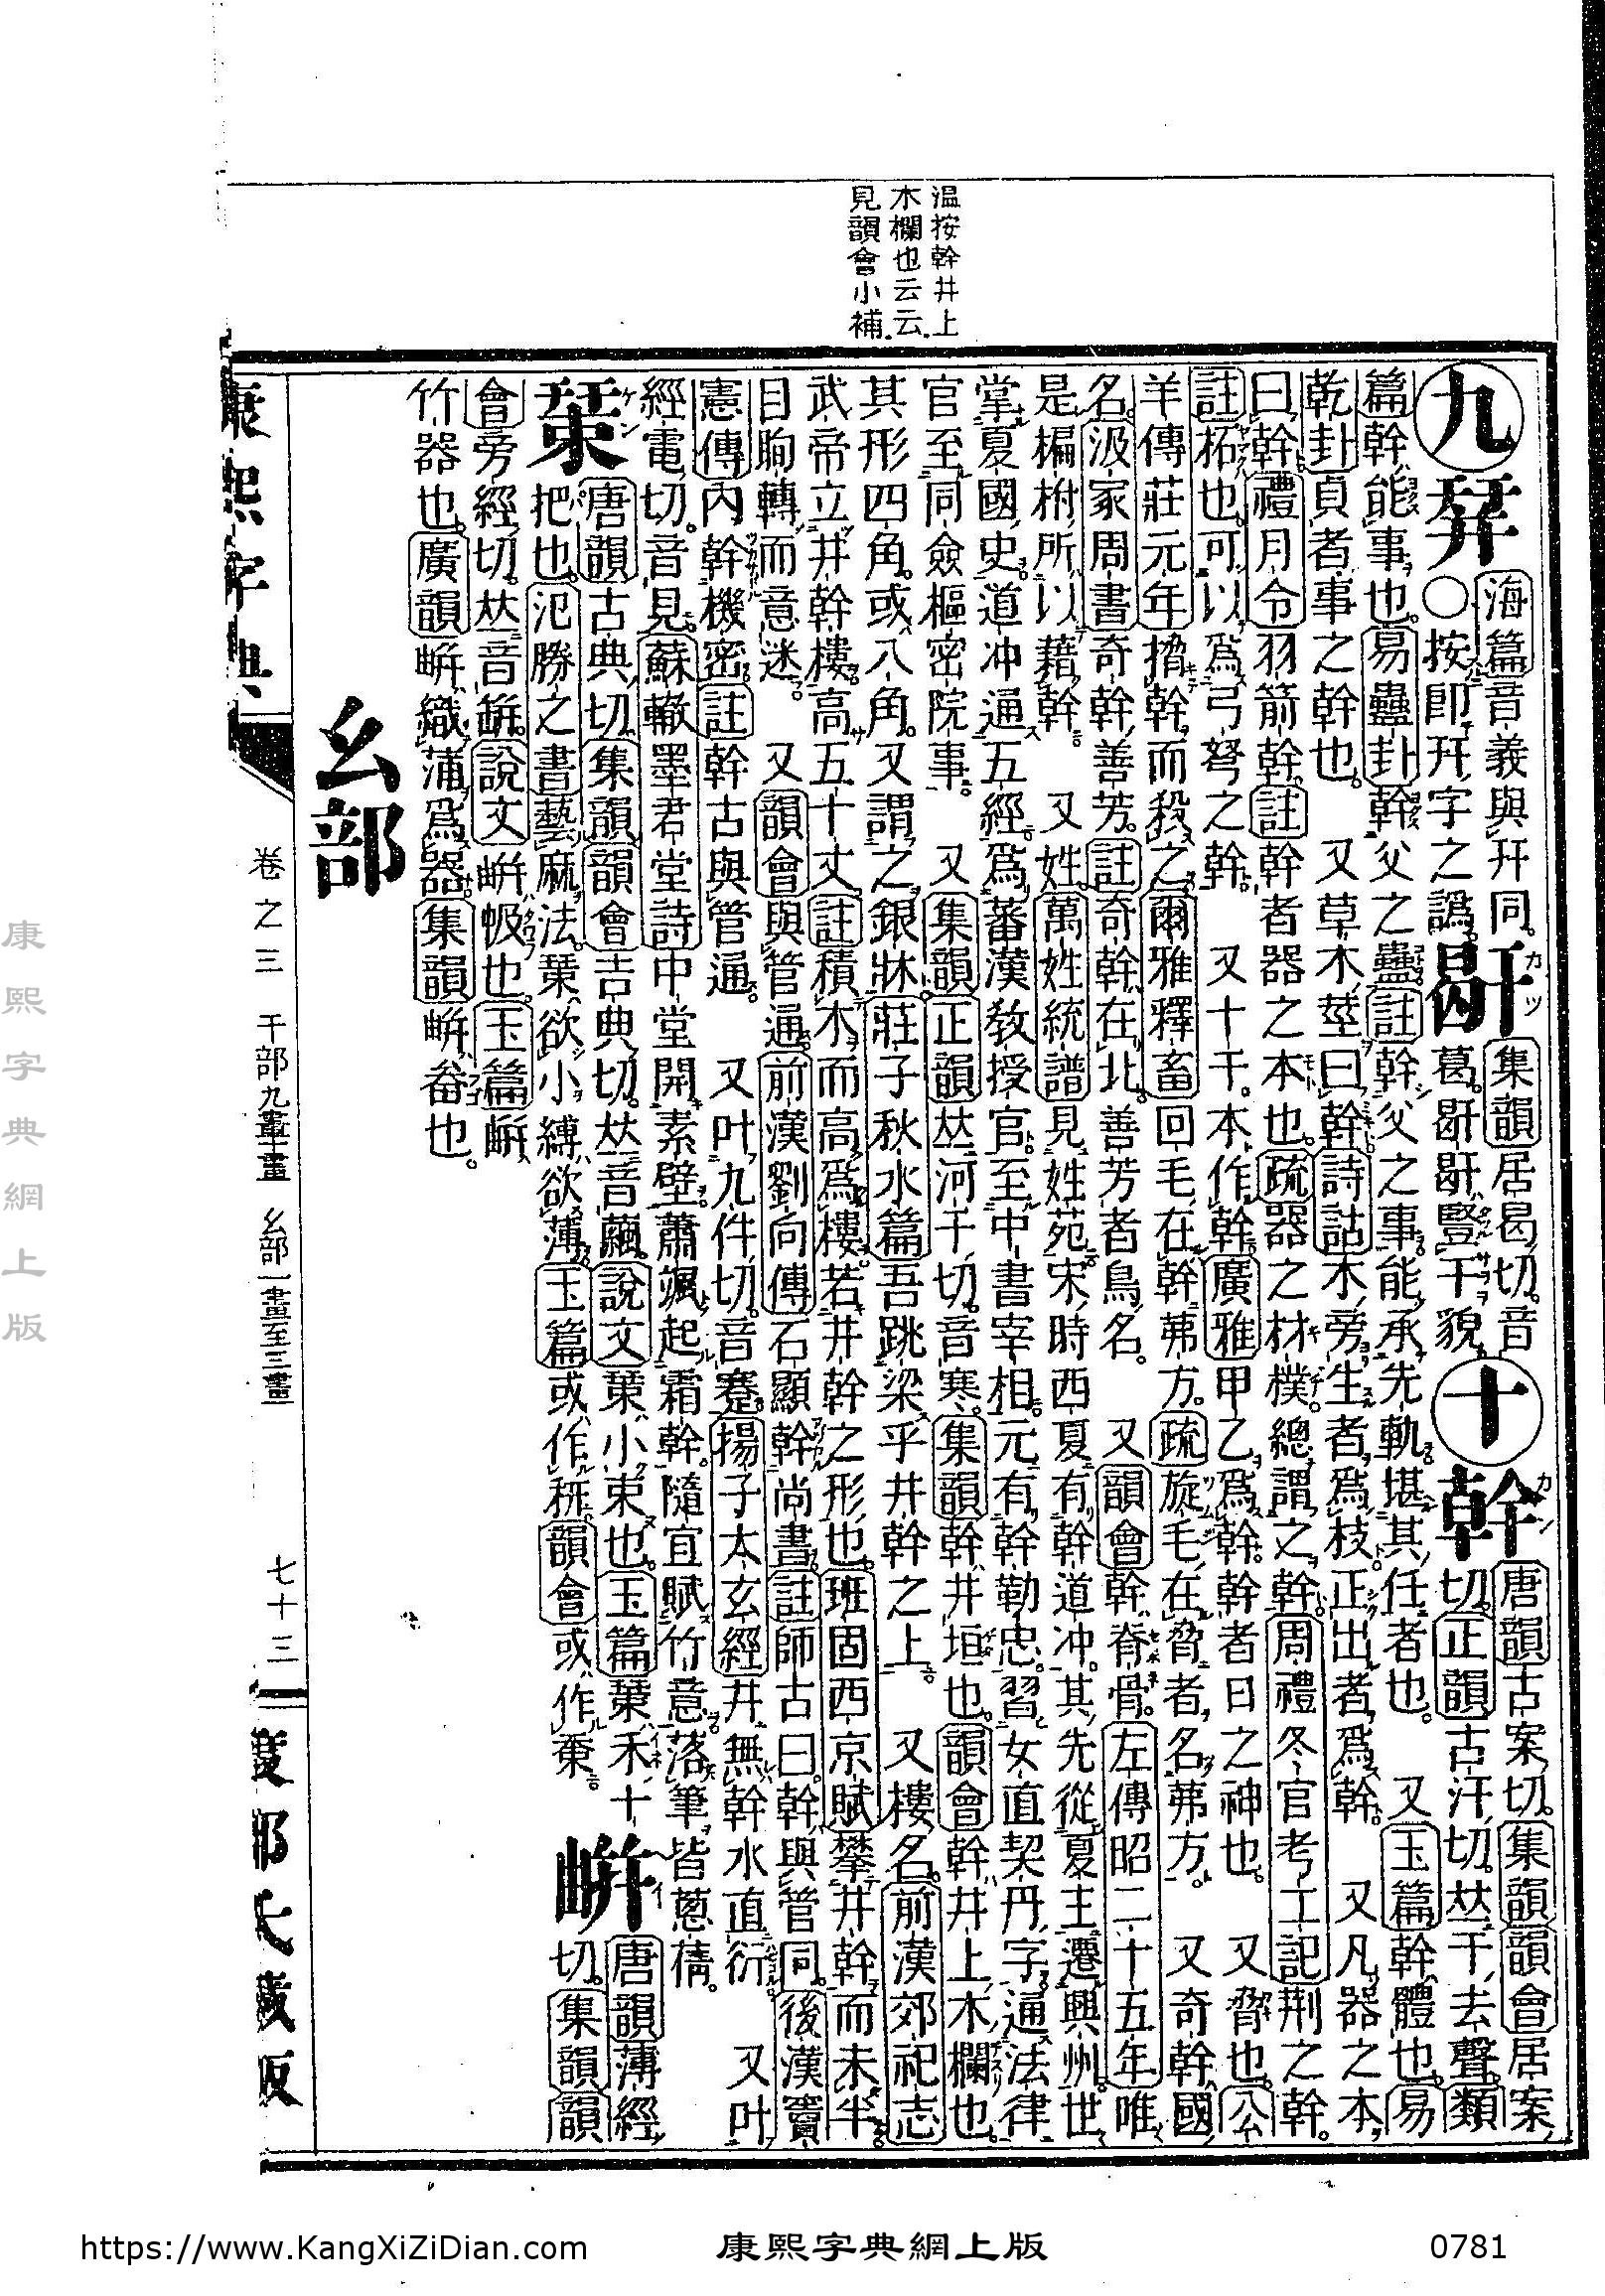 温按幹井上
木欄也云云
見韻會小補
九
海篇音義與幵同。
○按卽幵字之譌。
集韻居曷切。音
葛。豎干貌
十幹
唐韻古案切。集韻韻會居案
切。正韻古汗切。𠀤干去聲。類
篇幹能事也。易蠱卦幹父之蠱。註幹父之事能承先軌堪其任者也。 又玉篇幹體也。易
乾卦貞者事之幹也。 又草木莖曰幹詩詁木旁生者爲枝正出者爲幹 又凡器之本
曰幹禮月令羽箭幹註幹者器之本也。疏器之材樸總謂之幹周禮冬官考工記荆之幹。
註柘也。可以爲弓弩之幹 又十干。本作幹廣雅甲乙爲幹。幹者日之神也。 又脅也。公
羊傳莊元年搚幹而殺之爾雅釋畜回毛在幹茀方。疏旋毛在脅者名茀方。 又奇幹國
名。汲冢周書奇幹善芳。註奇幹在北。善芳者鳥名。 又韻會幹脊骨。左傳昭二十五年唯
是楄柎所以藉幹 又姓。萬姓統譜見姓苑宋時西夏有幹道冲。其先從夏主遷興州。世
掌夏國史。道冲通五經爲蕃漢敎授官至中書宰相。元有幹勒忠。習女直契丹字。通法律
官至同僉樞密院事。 又集韻正韻𠀤河干切。音寒。集韻幹井垣也。韻會幹井上木欄也。
其形四角。或八角。又謂之銀牀。莊子秋水篇吾跳梁乎井幹之上 又樓名。前漢郊祀志
武帝立井幹樓。高五十丈。註積木而高爲樓若井幹之形也。班固西京賦攀井幹而未半
目眴轉而意迷。 又韻會與管通前漢劉向傳石顯幹尚書。註師古曰。幹與管同。後漢竇
憲傳內幹機密。註幹古與管通。 又叶九件切。音蹇揚子太玄經井無幹水直衍 又叶
經電切。音見。蘇轍墨君堂詩中堂開素壁蕭颯起霜幹隨宜賦竹意落筆皆蔥蒨。
唐韻古典切集韻韻會吉典切。𠀤音繭。說文小束也。玉篇禾十
把也。氾勝之書藝麻法。欲小縛欲薄。玉篇或作韻會或作
唐韻薄經
切。集韻韻
會旁經切。𠀤音缾。說文帗也。玉篇
竹器也。廣韻織蒲爲器集韻畚也。
幺部
康熙字典
卷之三 干部九畫十畫 幺部一畫至三畫
七十三
渡部氏藏版
康熙字典網上版
https://www.KangXiZiDian.com
康熙字典網上版
0781